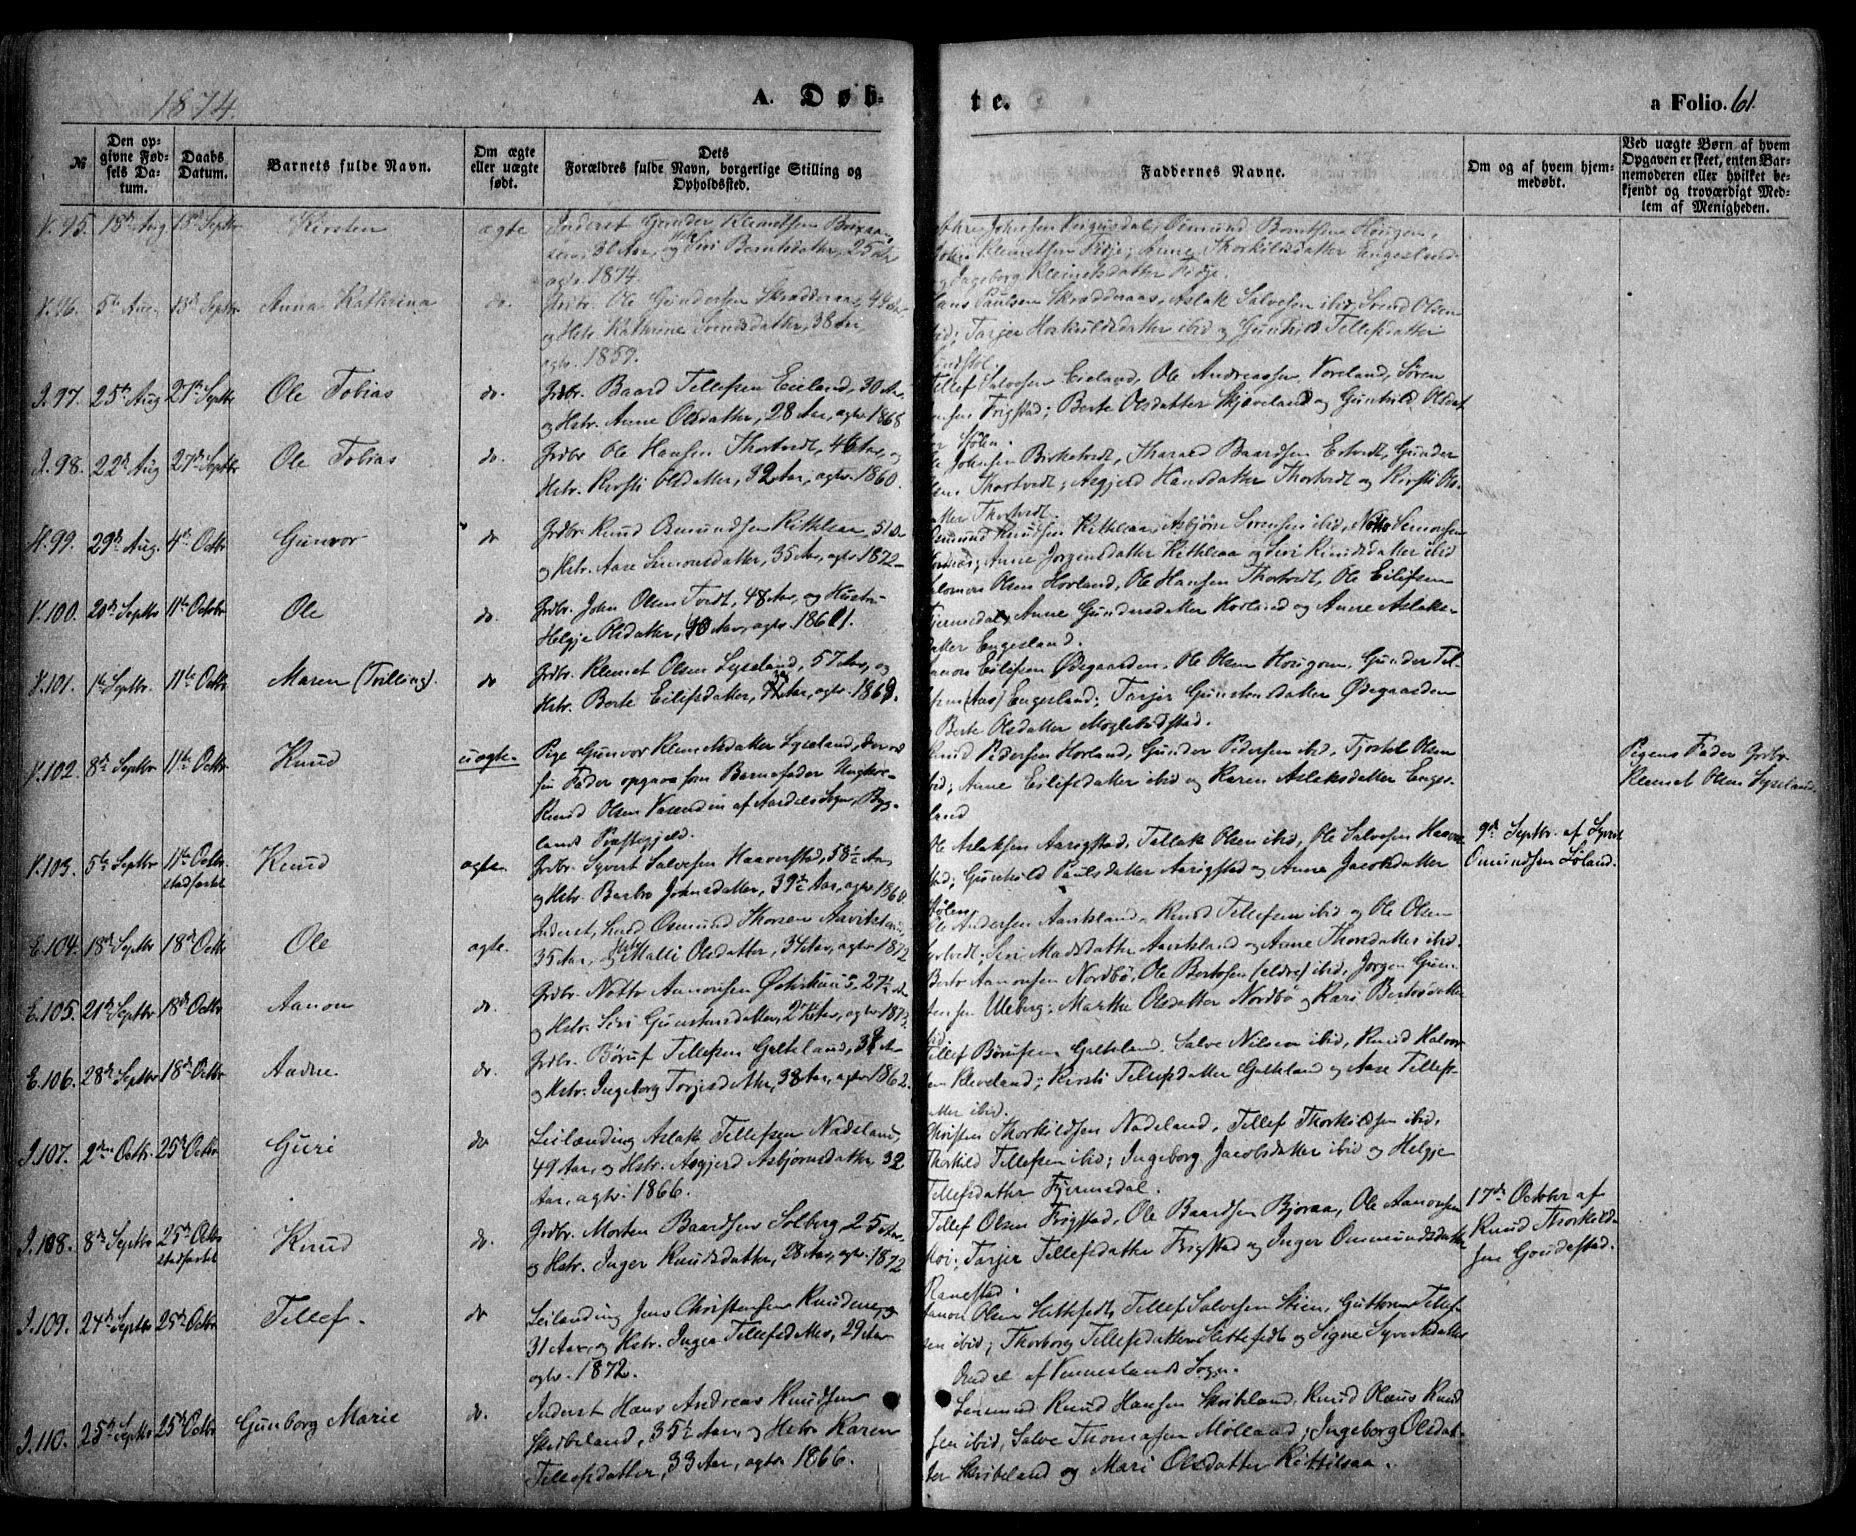 1874.
A. Døb-
te.
a Folio. 61.
№
Den op-
givne Fød-
sels Da-
tum.
Daabs
Datum.
Barnets fulde Navn.
Om ægte
eller uægte
født.
Dets
Forældres fulde Navn, borgerlige Stilling og
Opholdssted.
Faddernes Navne.
Om og af hvem hjem-
medøbt.
Ved uægte Børn af hvem
Opgaven er skeet, enten Bar-
nemoderen eller hvilket be-
kjendt og troværdigt Med-
lem af Menigheden.
V. 95. 18de Aug 13de Septbr Kirsten ægte Inderst Gunder Klemetsen
30 Aar, og Siri Berntsdatter, 25 Aar
agtv. 1874.
Osmund Berntsen Hougen,
Klemetsen Thorkildsdatter Engesland
og Ingeborg Klemetsdatter
V. 96. 5te Aug. 13de Septbr Anna Kathrina do. Grdbr. Ole Gundersen Skrødderaas, 44 Aar
og Hstr. Kathrine Svendsdatter, 38 Aar,
agtv. 1859.
Hans Paulsen Skrødderaas, Aslak Salvesen ibid, Svend Olsen
ibid; Tarjer Horkildsdatter ibid og Gunhild Tellefsdatter
I. 97. 25de Aug 27de Septbr Ole Tobias do. Grdbr. Baard Tellefsen Eieland, 30 Aar,
og Hstr. Anne Olsdatter, 28 Aar, agtv. 1868
Tellef Salvesen Eieland, Ole Andreassen Voreland, Søren
Frigstad; Berte Olsdatter Skjaveland og Gunhild Olsdat
I. 98. 22de Aug 27de Septbr Ole Tobias do. Grdbr Ole Hansen Thortvedt, 46 Aar, og
Hstr. Kirsti Olsdatter, 32 Aar, agtv. 1860.
Ole Johnsen Birketvedt, Tharald Baardsen Estvedt, Gunder
Olsen Thortvedt; Asgjerd Hansdatter Thortvedt og Kirsti Ols-
datter Thortvedt.
H. 99. 29de Aug. 4de Octbr Gunvor do Grdbr Knud Osmundsen Kittelsaa, 51 Aar
og Hstr. Aase Simonsdatter, 35 Aar, agtv. 1872
Osmund Knudsen Kittelsaa, Asbjørn Sørensen ibid, Notto Simonsen
Anne Jørgensdatter Kittelsaa og Siri Knudsdatter ibid
V. 100. 20de Septbr 11te Octobr Ole do. Grdbr. John Olsen Tvedt, 48 Aar, og Hustru
Helgje Olsdatter, 40 Aar, agtv. 1861.
Salomon Olsen Horland, Ole Hansen Thortvedt, Ole Eilifsen
Fjermedal, Anne Gundersdatter Horland og Anne Aslaks-
datter Engesland.
V. 101. 1te Septbr. 11te Octbr Maren (Trilling). do Grdbr. Klemet Olsen Lyseland, 57 Aar, og
Hstr. Berte Eilifsdatter, Aar, agtv. 1868.
Aanon Eilifsen Ødegaarden, Ole Olsen Hougom, Gunder Tel-
lefsen (Aas) Engesland; Tarjer Gunstensdatter Ødegaarden
Berte Olsdatter Moglebustad.
V. 102. 8de Septbr 11te Octbr Knud uægte. Pige Gunvor Klemetsdatter Lyseland, der ved
sin Fader opgav som Barnefader Ungkarl
Knud Olsen Vasenden af Aardals Sogn, Byg-
lands Præstegjeld.
Knud Pedersen Horland, Gunder Pedersen ibid, Tjøstel Olsen
ibid; Anne Eilifsdatter ibid og Karen Aslaksdatter Enges-
land
Pigens Fader Grdbr.
Klemet Olsen Lyseland.
V. 103. 5te Septbr 11te Octbr. stadfæstet Knud ægte. Grdbr. Syvert Salvesen Haaverstad, 58½ Aar
og Hstr. Barbro Johnsdatter, 39½ Aar, agtv. 1860.
Ole Aslaksen Aarigstad, Tallak Olsen ibid, Ole Salvesen Haaver
stad; Gunhild Paulsdatter Aarigstad og Anne Jacobsdatter
Stølen
9de Septbr. af Syvert
Omundsen Løland.
E. 104. 18de Septbr 18de Octbr Ole ægte. Inderst, Osmund Thorsen
35 Aar, og Hstr Malli Olsdatter, 34 Aar, agtv 1872
Ole Andersen Aarikstad, Knud Tellefsen ibid og Ole Olsen
Siri Madsdatter og Anne Thorsdatter ibid.
E. 105. 21de Septbr 18de Octbr Aanon do. Grdbr. Notto Aanonsen Østerhuus, 27½ Aar
og Hstr. Siri Gunstensdatter, 27 Aar, agtv 1873.
Berto Aanonsen Nordbø, Ole Bertosen (eldre) ibid, Jørgen Gun-
stensen Uleberg; Marthe Olsdatter Nordbø og Kari Bertosdatter
ibid
E. 106. 28de Septbr 18de Octbr Aadne. do. Grdbr. Børuf Tellefsen Galteland, 38 Aar
og Hstr. Ingeborg Torjesdatter, 38 Aar, agtv 1862.
Tellef Børufsen Galteland, Salve Nilsen ibid, Knud Halvor
sen Kleveland; Kirsti Tellefsdatter Galteland og Aase Tellefs-
datter ibid.
I. 107. 2den Octbr. 25de Octbr Guri do Leilænding Aslak Tellefsen Nadeland,
49 Aar, og Hstr. Asgjerd Asbjørnsdatter, 32
Aar, agtv. 1866.
Christen Thorkildsen Nadeland, Tellef Thorkildsen ibid,
Thorkild Tellefsen ibid; Ingeborg Jacobsdatter ibid og Helgje
Tellefsdatter Fjermedal.
I. 108. 8de Septbr 25de Octbr stadfæstet Knud do. Grdbr. Morten Baardsen Solberg 25 Aar,
og Hstr. Inger Knudsdatter, 28 Aar, agtv. 1872
Tellef Olsen Frigstad, Ole Baardsen Bjoraa, Ole Aanonsen
Moi; Tarjer Tellefsdatter Frigstad og Inger Osmundsdatter
Ranestad.
17de October af
Knud Thorkild-
sen Goudestad.
I. 109. 24de Septbr 25de Octbr Tellef. do Leilænding Jens Christensen Knudene,
31 Aar, og Hstr. Inger Tellefsdatter, 29 Aar
agtv. 1872.
Aanon Olsen Slettefedt, Tellef Salvesen Stien, Guttorm Tellef-
sen ibid; Thorborg Tellefsdatter Slettefedt og Signe Syvertsdatter
Omdal af Venneslands Sogn.
I. 110. 25de Septbr 25de Octbr Gunborg Marie do. Inderst Hans Andreas Knudsen
Skibeland, 35½ Aar, og Hstr. Karen
Tellefsdatter, 33 Aar, agtv 1866.
Knud Hansen Skibeland, Knud Olaus Knud
sen ibid, Salve Thomasen Mølland; Ingeborg Olsdat-
ter Skibeland og Mari Olsdatter Kittilsaa.